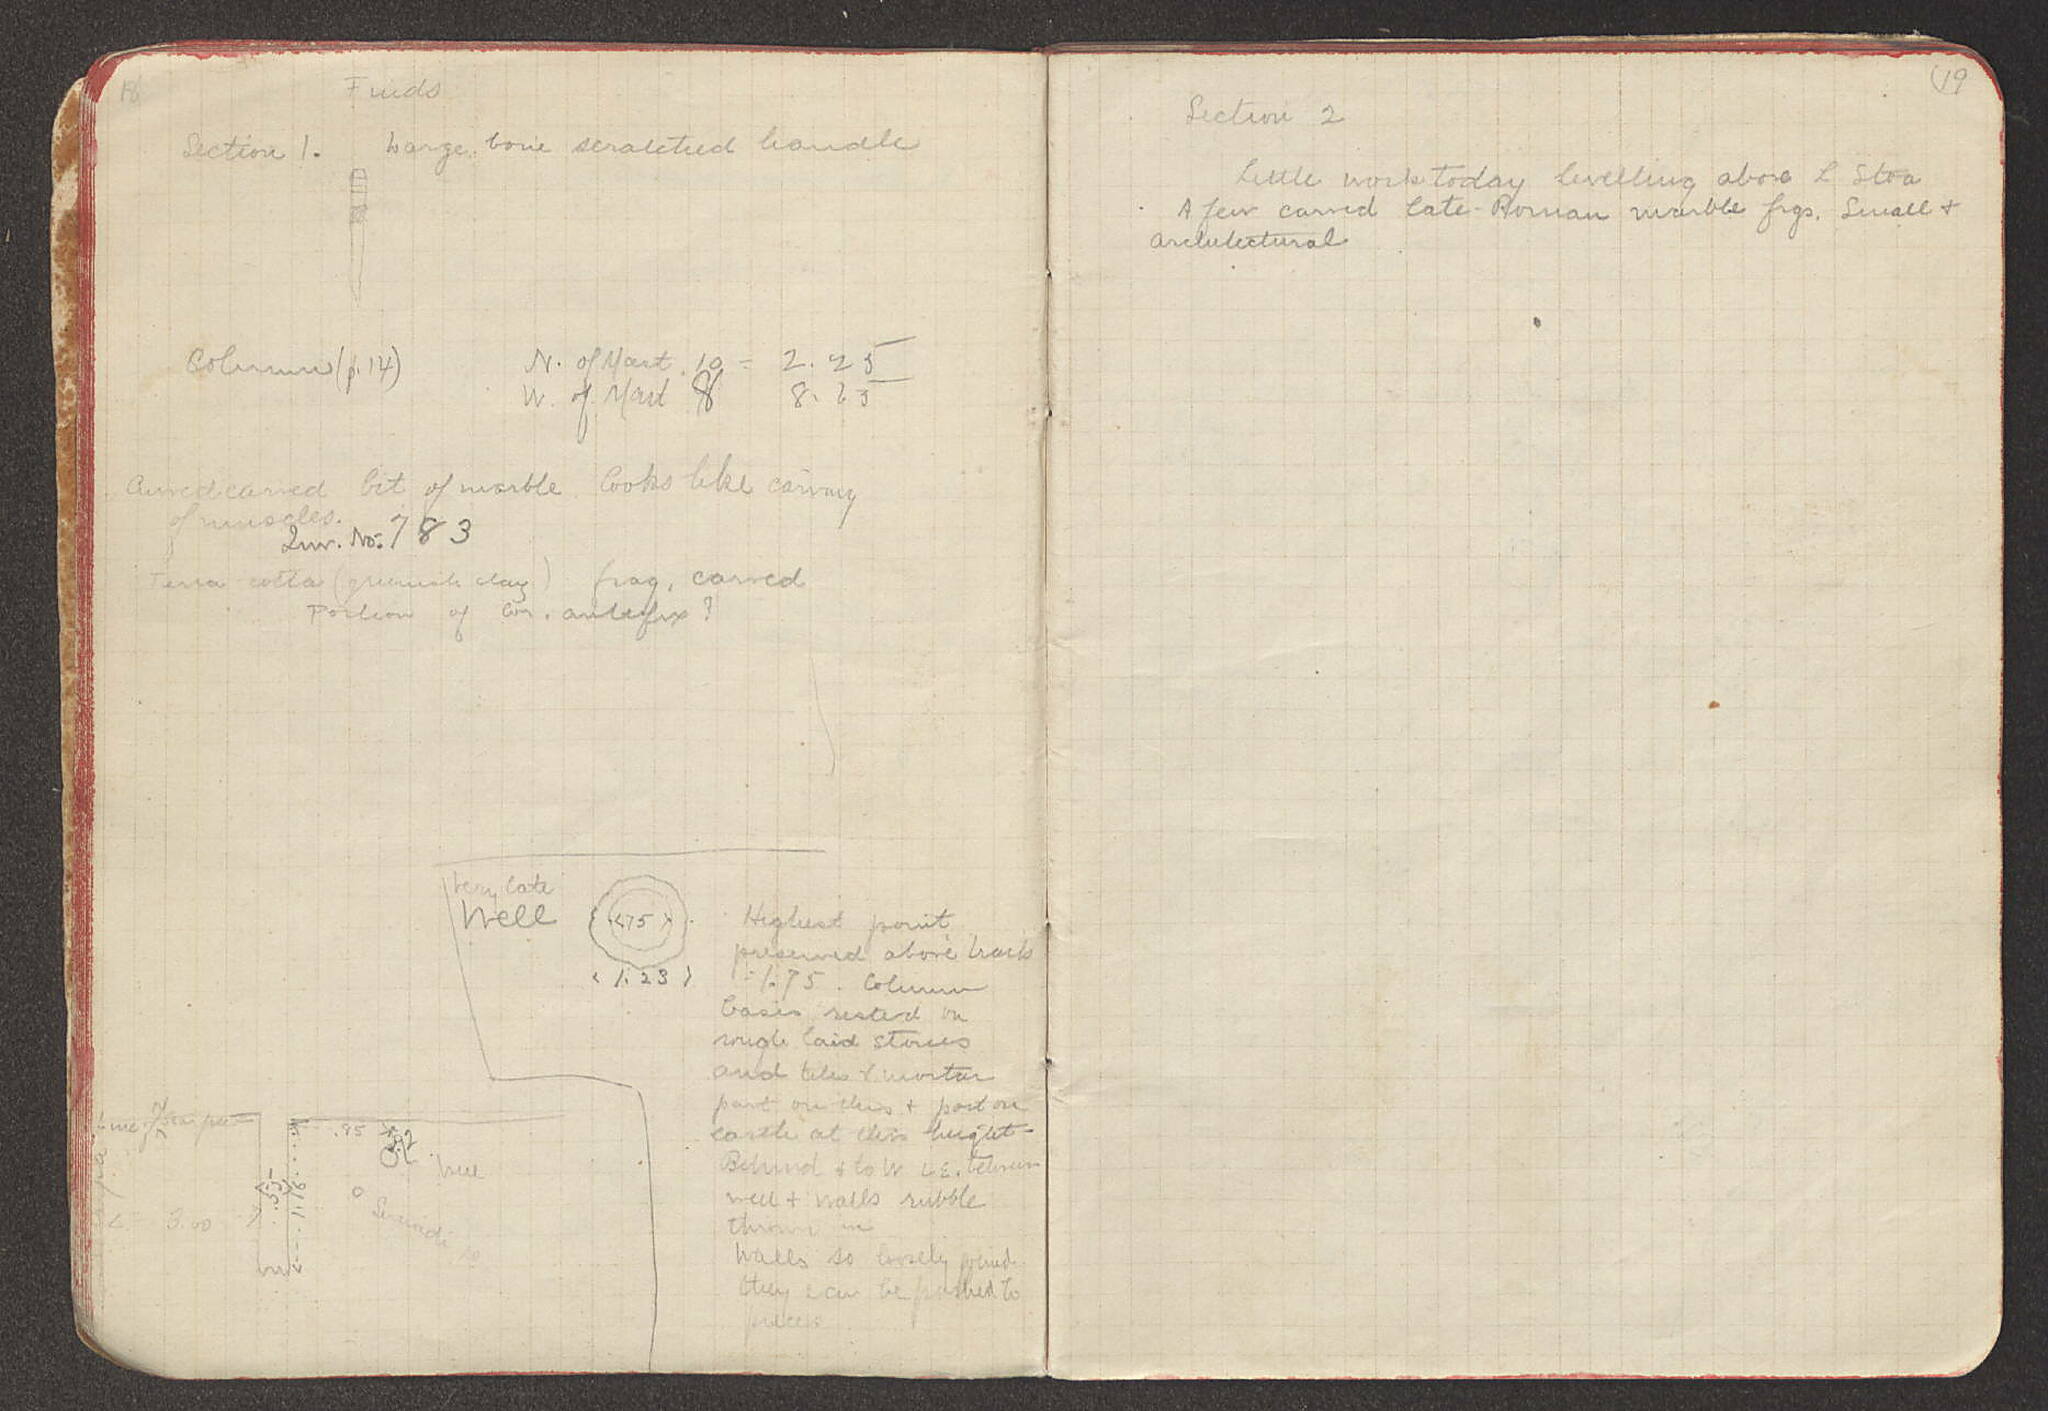 18
Finds
Section 1. Large bone scratched handle
Column (p. 14) N. of Mart 10 = 2.25
W. of Mart 8 8.
Curved carved bit of marble. Looks like carving
of muscles.
Inv. No. 783
Terra cotta (greenish clay) frag, carved
Portion of Cor. antefix?
Very late
Well
<75>
<1.23>
Highest point
preserved above
= 1.75. Column
basis rested on
rough laid stones
and tiles & mortar
part on this & part on
earth at this height-
Behind & to W i.e. between
well & walls rubble
thrown in
Walls so loosely joined
they can be pushed to
pieces
Line of
.85
well
.55
1.18
3.00
19
Section 2
Little work today levelling above L Stoa
A few carved late-Roman marble frgs. Small &
architectural